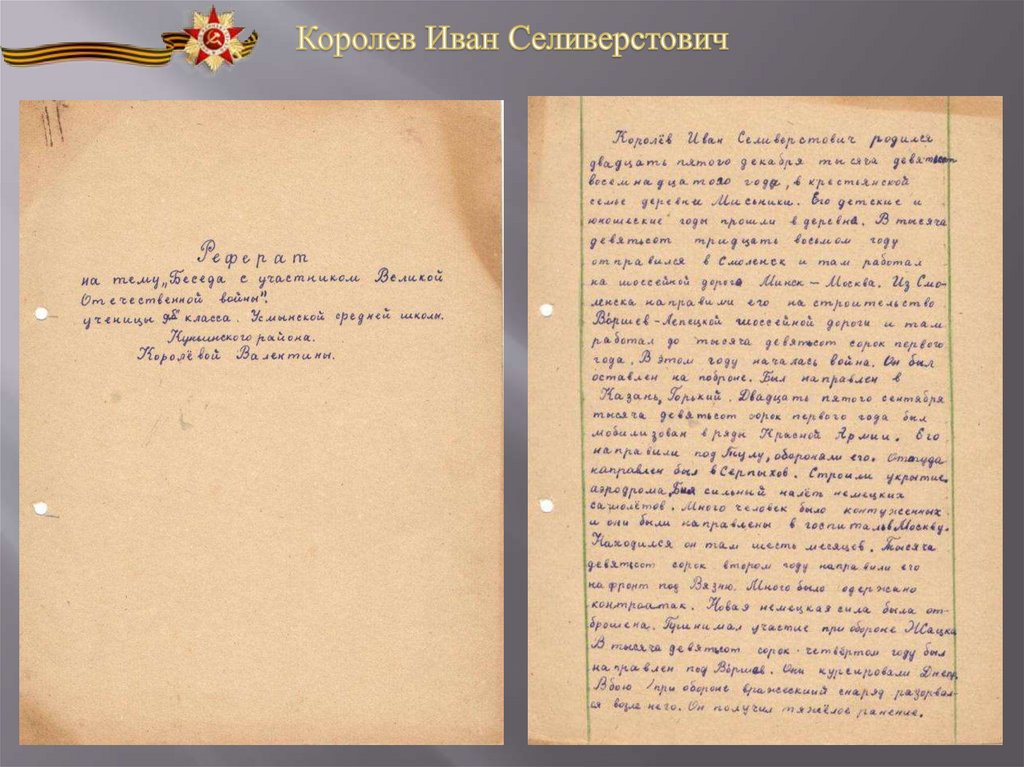 Королев Иван Селиверстович
Реферат
на тему „Беседа с участником Великой
Отечественной войны".
ученицы 9б класса. Усмынской средней школы.
Куньинского района.
Королёвой Валентины.
Королёв Иван Селиверстович родился
двадцать пятого декабря тысяча девятьсот
восемнадцатого года, в крестьянской
семье деревни Мисьники. Его детские и
юношеские годы прошли в деревне. В тысяча
девятьсот тридцать восьмом году
отправился в Смоленск и там работал
на шоссейной дороге Минск – Москва. Из Смо-
ленска направили его на строительство
Воршев-Лепецкой шоссейной дороги и там
работал до тысяча девятьсот сорок первого
года. В этом году началась война. Он был
оставлен на поброне. Был направлен в
Казань, Горький. Двадцать пятого сентября
тысяча девятьсот сорок первого года был
мобилизован в ряды Красной Армии. Его
направили под Тулу, обороняли его. Оттуда
направлен был в Серпыхов. Строили укрытие
аэродрома. Был сильный налёт немецких
самолётов. Много человек было контуженных
и они были направлены в госпиталь в Москву.
Находился он там шесть месяцев. Тысяча
девятьсот сорок втором году направили его
на фронт под Вязню. Много было одержано
контроатак. Новая немецкая сила была от-
брошена. Принимал участие при обороне Жацка
В тысяча девятьсот сорок четвёртом году был
направлен под Воршев. Они курсировали Днепр.
В бою при обороне вражеский снаряд разорвал-
ся возле него. Он получил тяжёлое ранение.